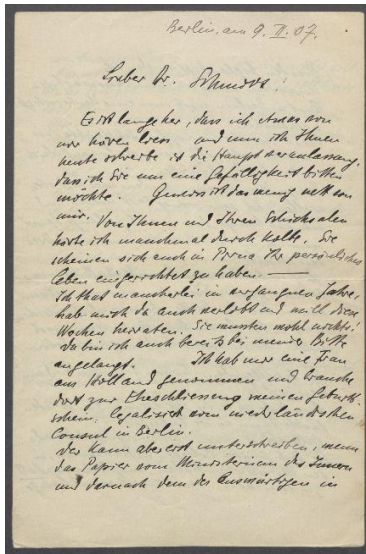 Berlin, am 9. II. 07.
Lieber Dr. Schmidt!
Es ist lange her, dass ich etwas von
mir hören liess und wenn ich Ihnen
heute schreibe ist die Hauptveranlassung,
dass ich Sie um eine Gefälligkeit bitten
möchte. Gewiss ist das wenig nett von
mir. Von Ihnen und Ihren Schicksalen
hörte ich manchmal durch Kolte. Sie
scheinen sich auch in Pirna Ihr persönliches
Leben eingerichtet zu haben. —
Ich that mancherlei in vergangnen Jahre,
hab mich da auch verlobt und will diese
Wochen heiraten. Sie wussten wohl nichts!
Da bin ich auch bereits bei meiner Bitte
angelangt. Ich hab mir eine Frau
aus Holland genommen und brauche
dort zur Eheschliessung meinen Geburts-
schein, legalisiert vom niederländischen
Consul in Berlin.
Der kann aber erst unterschreiben, wenn
das Papier vom Ministerium des Innern
und darnach dem der Auswärtigen in